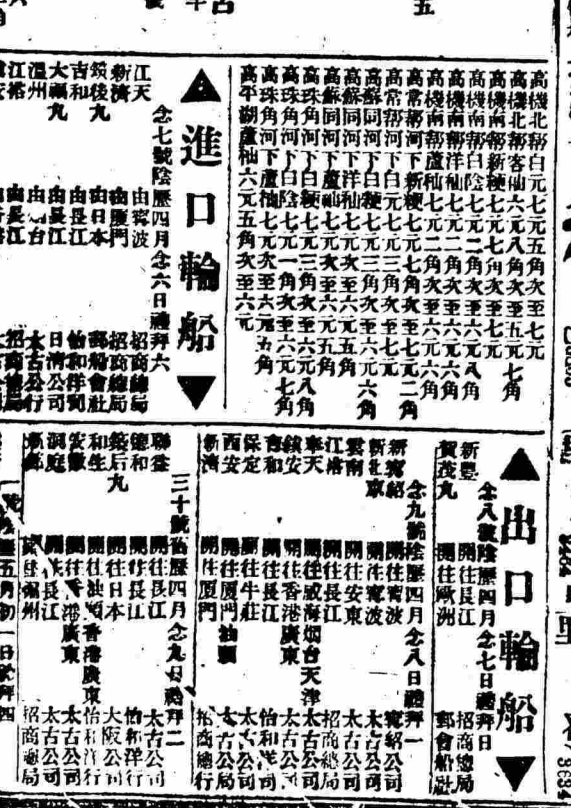 高機北帮白元七元五角次至七元
高機北帮客秈六元八角次至五元七角
高機南帮新粳七元七角次至七元
高機南帮白陰七元二角次至六元八角
高機南帮洋秈七元二角次至六元六角
高機南帮蘆秈七元二角次至六元六角
高常帮河下新粳七元七角次至七元二角
高常帮河下白元七元三角次至七元
高蘇同河下白粳七元三角次至六元六角
高蘇同河下洋秈七元次至六元五角
高蘇同河下蘆秈七元次至六元五角
高珠角河下白粳七元三角次至六元八角
高珠角河下白陰七元一角次至六元七角
高珠角河下蘆秈七元次至六元五角
高平湖蘆秈六元五角次至六元
▲進口輪船▼
念七號陰歷四月念六日禮拜六
江天 由寗波 招商總局
新濟 由厦門 招商總局
筑後丸 由日本 郵船會社
吉和 由長江 怡和洋行
大福丸 由長江 日清公司
溫州 由烟台 太古公行
江裕 由長江 招商總局
▲出口輪船▼
念八號陰歷四月念七日禮拜日
新豐 開往長江 招商總局
賀茂丸 開往歐洲 郵會船社
念九號陰歷四月念八日禮拜一
新寗紹 開往寗波 寗紹公司
新北京 開往寗波 太古公司
雲南 開往安東 太古公司
江裕 開往長江 招商總局
奉天 開往威海烟台天津 太古公司
鎮安 開往香港廣東 太古公司
吉和 開往長江 怡和公司
保定 開往牛莊 太古公司
西安 開往厦門汕頭 太古公局
新濟 開往厦門 招商總行
三十號陰歷四月念九日禮拜二
聯益 開往長江 太古公司
德和 開往長江 怡和洋行
筑后丸 開往日本 大阪公司
和生 開往汕頭香港廣東 怡和洋行
安徽 開往香港廣東 太古公司
洞庭 開往長江 太古公司
招商總局